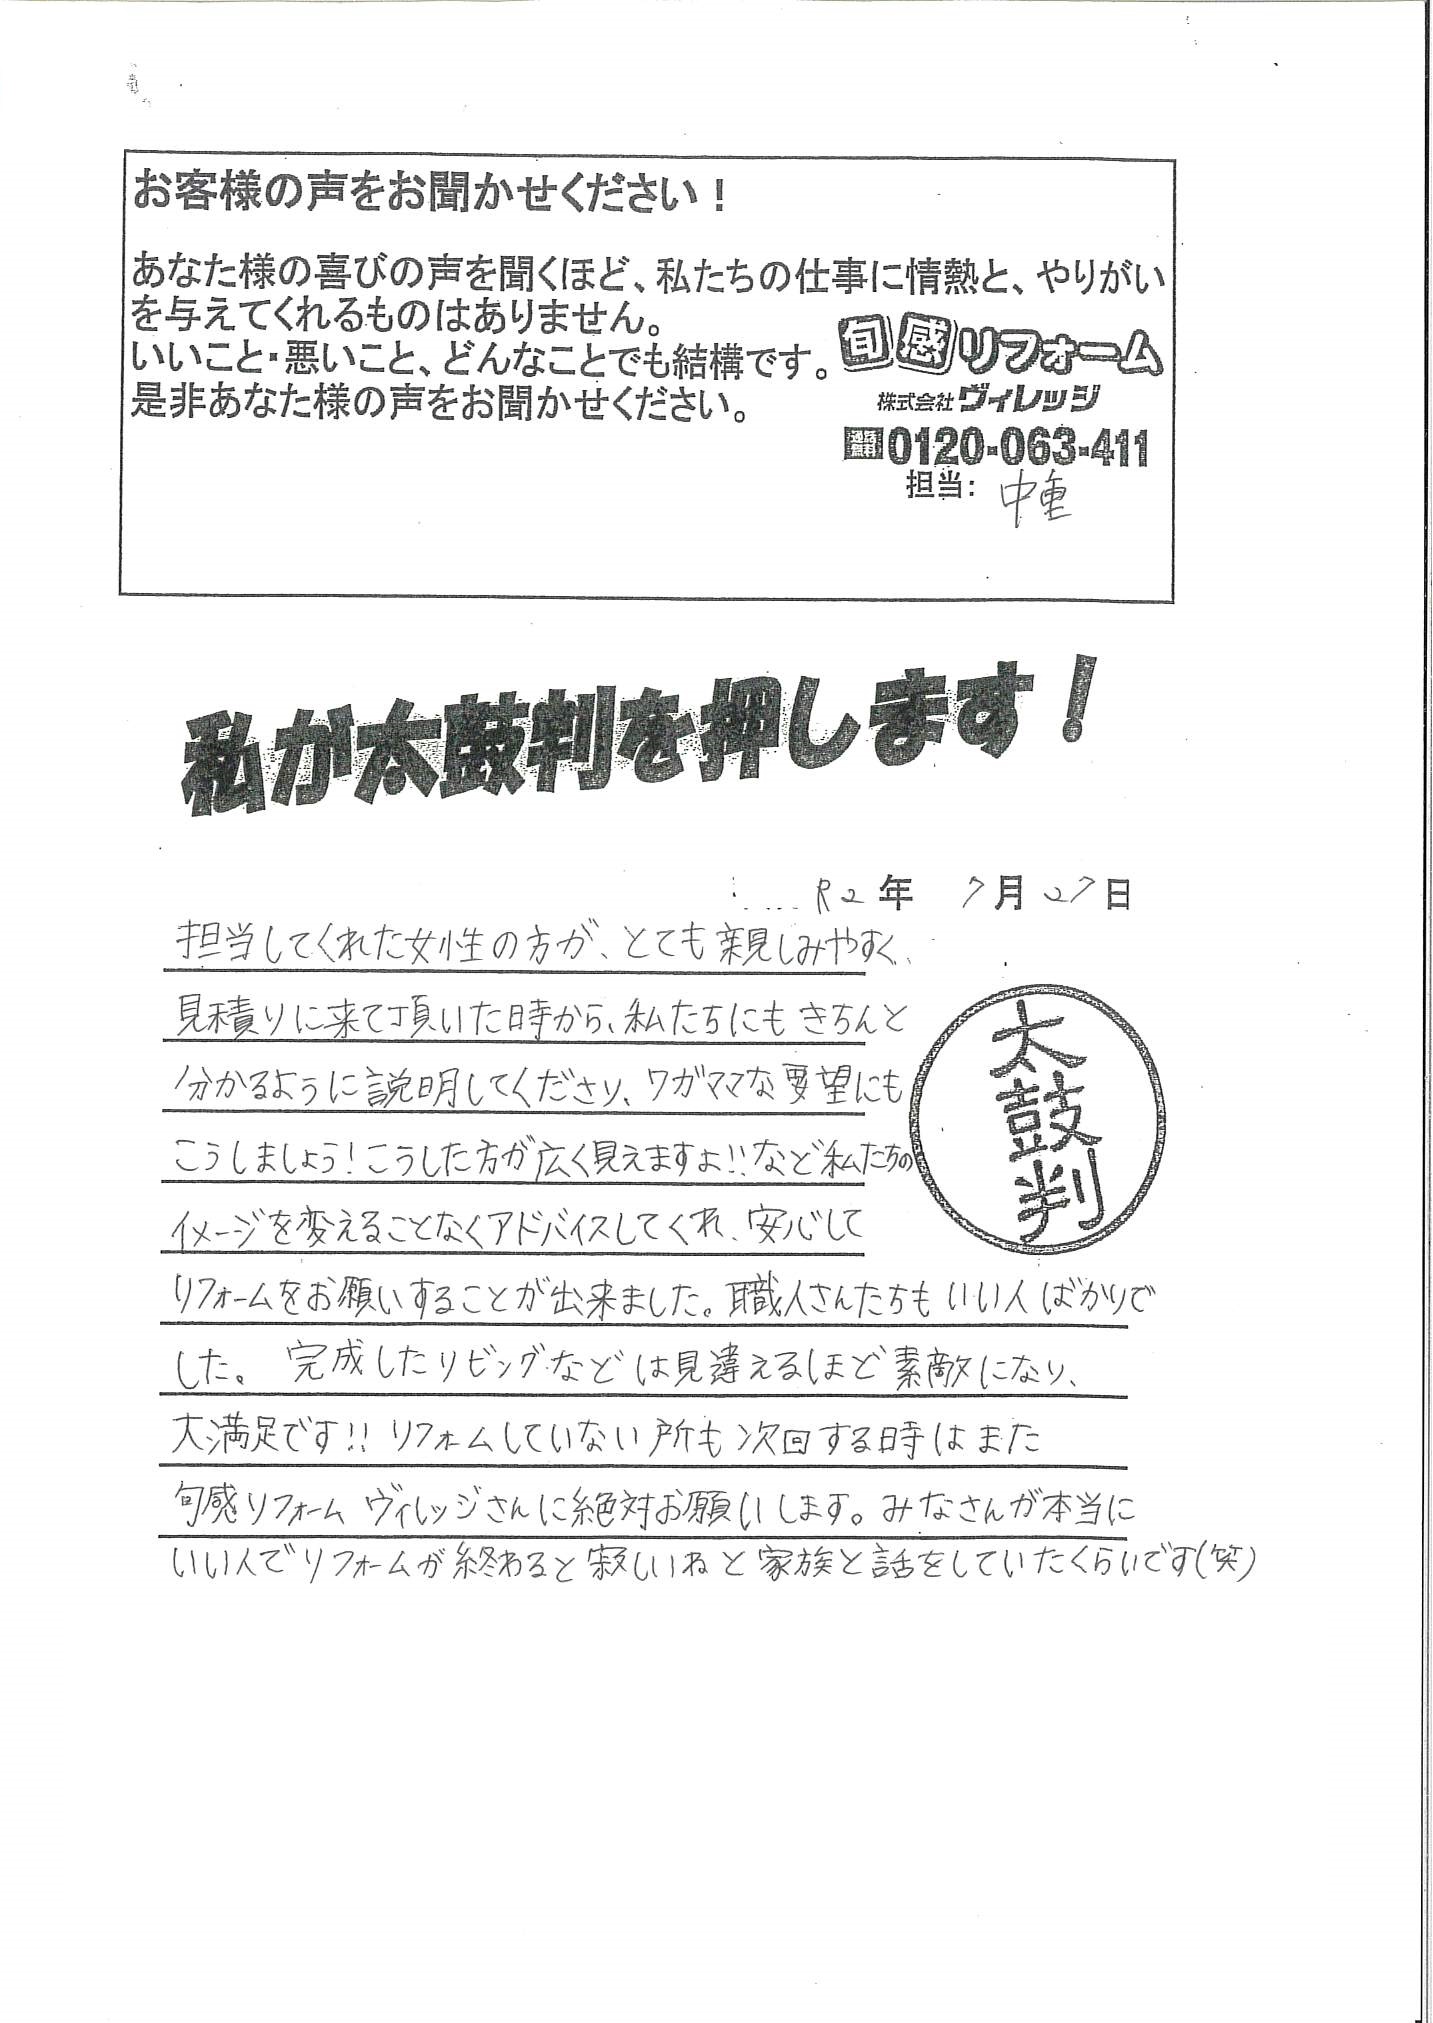 お客様の声をお聞かせください！
あなた様の喜びの声を聞くほど、私たちの仕事に情熱と、やりがい
を与えてくれるものはありません。
いいこと・悪いこと、どんなことでも結構です。
是非あなた様の声をお聞かせください。
旬感リフォーム
株式会社ヴィレッジ
0120-063-411
担当: 中重
私が太鼓判を押します！
R2年 7月27日
担当してくれた女性の方が、とても親しみやすく、
見積りに来て頂いた時から、私たちにもきちんと
分かるように説明してくださり、ワガママな要望にも
こうしましょう！こうした方が広く見えますよ!!など私たちの
イメージを変えることなくアドバイスしてくれ、安心して
リフォームをお願いすることが出来ました。職人さんたちもいい人ばかりで
した。完成したリビングなどは見違えるほど素敵になり、
大満足です!!リフォームしていない所も次回する時はまた
旬感リフォームヴィレッジさんに絶対お願いします。みなさんが本当に
いい人でリフォームが終わると寂しいねと家族と話をしていたくらいです(笑)
太鼓判